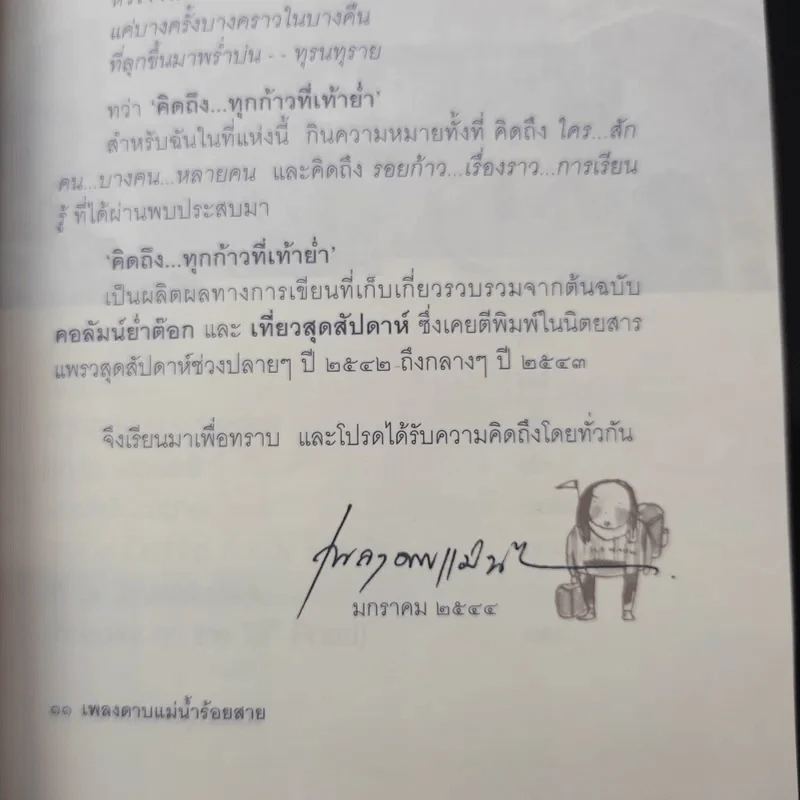 แค่บางครั้งบางคราวในบางคืน
ที่ลุกขึ้นมาพร่ำบ่น - - ทุรนทุราย
ทว่า 'คิดถึง...ทุกก้าวที่เท้าย่ำ'
สำหรับฉันในที่แห่งนี้ กินความหมายทั้งที่ คิดถึง ใคร...สัก
คน...บางคน...หลายคน และคิดถึง รอยก้าว...เรื่องราว...การเรียน
รู้ ที่ได้ผ่านพบประสบมา
'คิดถึง...ทุกก้าวที่เท้าย่ำ'
เป็นผลิตผลทางการเขียนที่เก็บเกี่ยวรวบรวมจากต้นฉบับ
คอลัมน์ย่ำต๊อก และ เที่ยวสุดสัปดาห์ ซึ่งเคยตีพิมพ์ในนิตยสาร
แพรวสุดสัปดาห์ช่วงปลายๆ ปี ๒๕๔๒ ถึงกลางๆ ปี ๒๕๔๓
จึงเรียนมาเพื่อทราบ และโปรดได้รับความคิดถึงโดยทั่วกัน
มกราคม ๒๕๔๔
๑๑ เพลงดาบแม่น้ำร้อยสาย